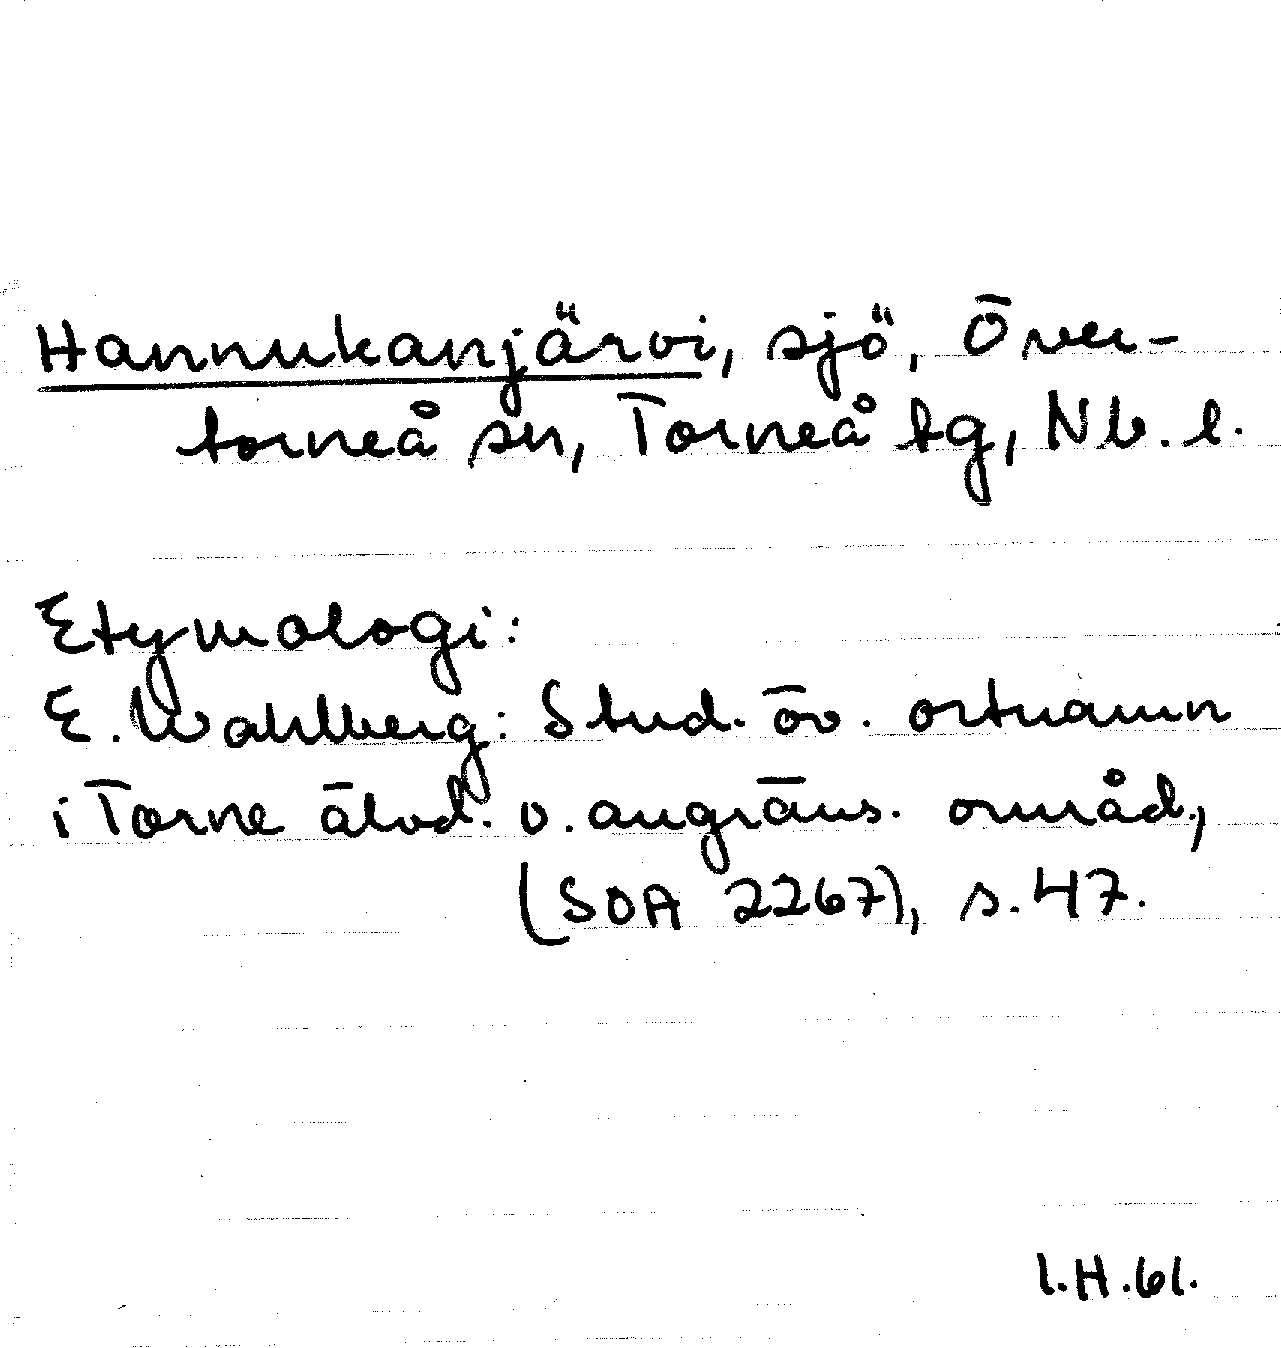 Hannukanjärvi, sjö, Över-
torneå sn, Torneå tg, Nb. l.
Etymologi:
E. Wahlberg: Stud. öv. ortnamn
i Torne älvd. o. angräns. områd.,
(SOA 2267), s. 47.
I.H.61.